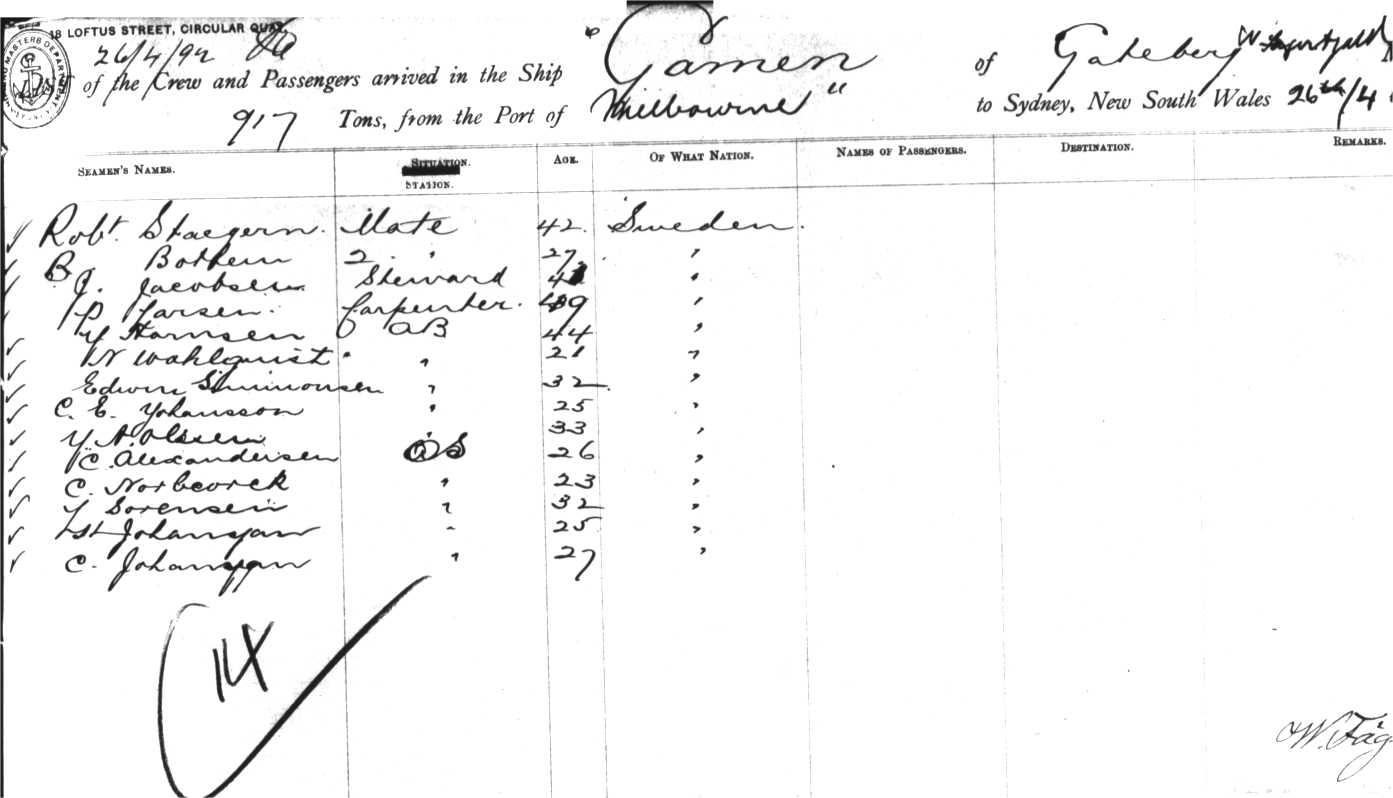 18 LOFTUS STREET, CIRCULAR QUAY,
26/4/92
LIST of the Crew and Passengers arrived in the Ship "Gamen of Goteberg W.
917 Tons, from the Port of Melbourne" to Sydney, New South Wales 26th/4
SEAMEN'S NAMES. SITUATION. STATION. AGE. OF WHAT NATION. NAMES OF PASSENGERS. DESTINATION. REMARKS.
Robt. Staegern. Mate 42. Sweden.
B Bothem 2. " 27 "
J. Jacobsen Steward "
P Larsen. Carpenter. "
Y Hamsen AB 44 "
W Wahlquist " 21 "
Edwin Simmonsen " 32 "
C. E. Yohansson " 25 "
Y A. Olsen " 33 "
C. Alexandersen OS 26 "
C. Norbcorck " 23 "
Y Sorensen " 32 "
Johansson " 25 "
C. Johansson " 27 "
14
W. Fåg